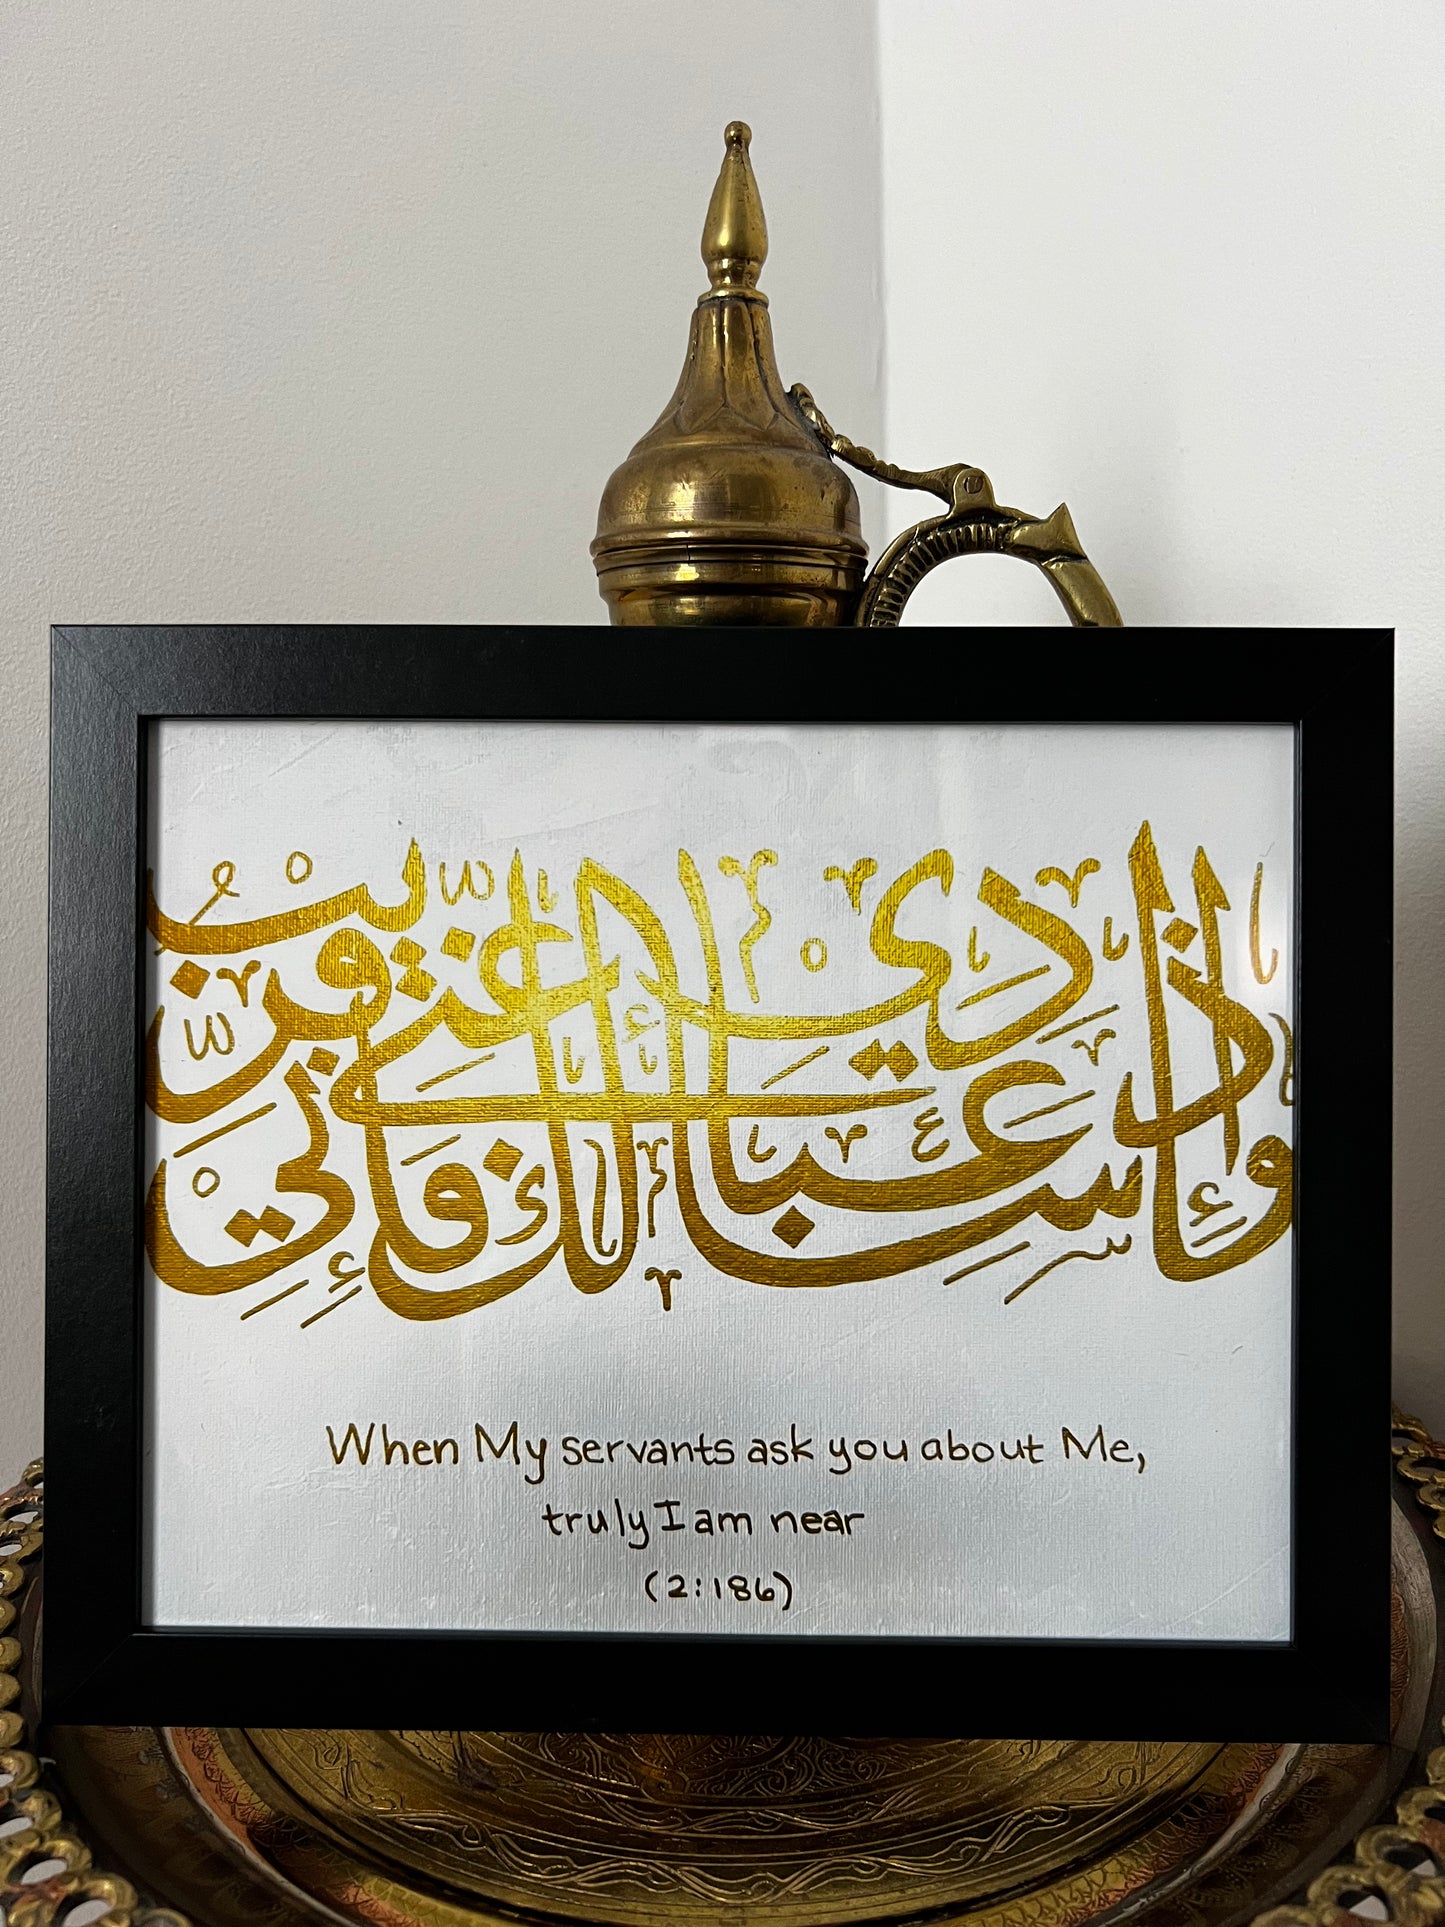 وَإِذَا سَأَلَكَ عِبَادِي عَنِّي فَإِنِّي قَرِيبٌ
When My servants ask you about Me,
truly I am near
(2:186)